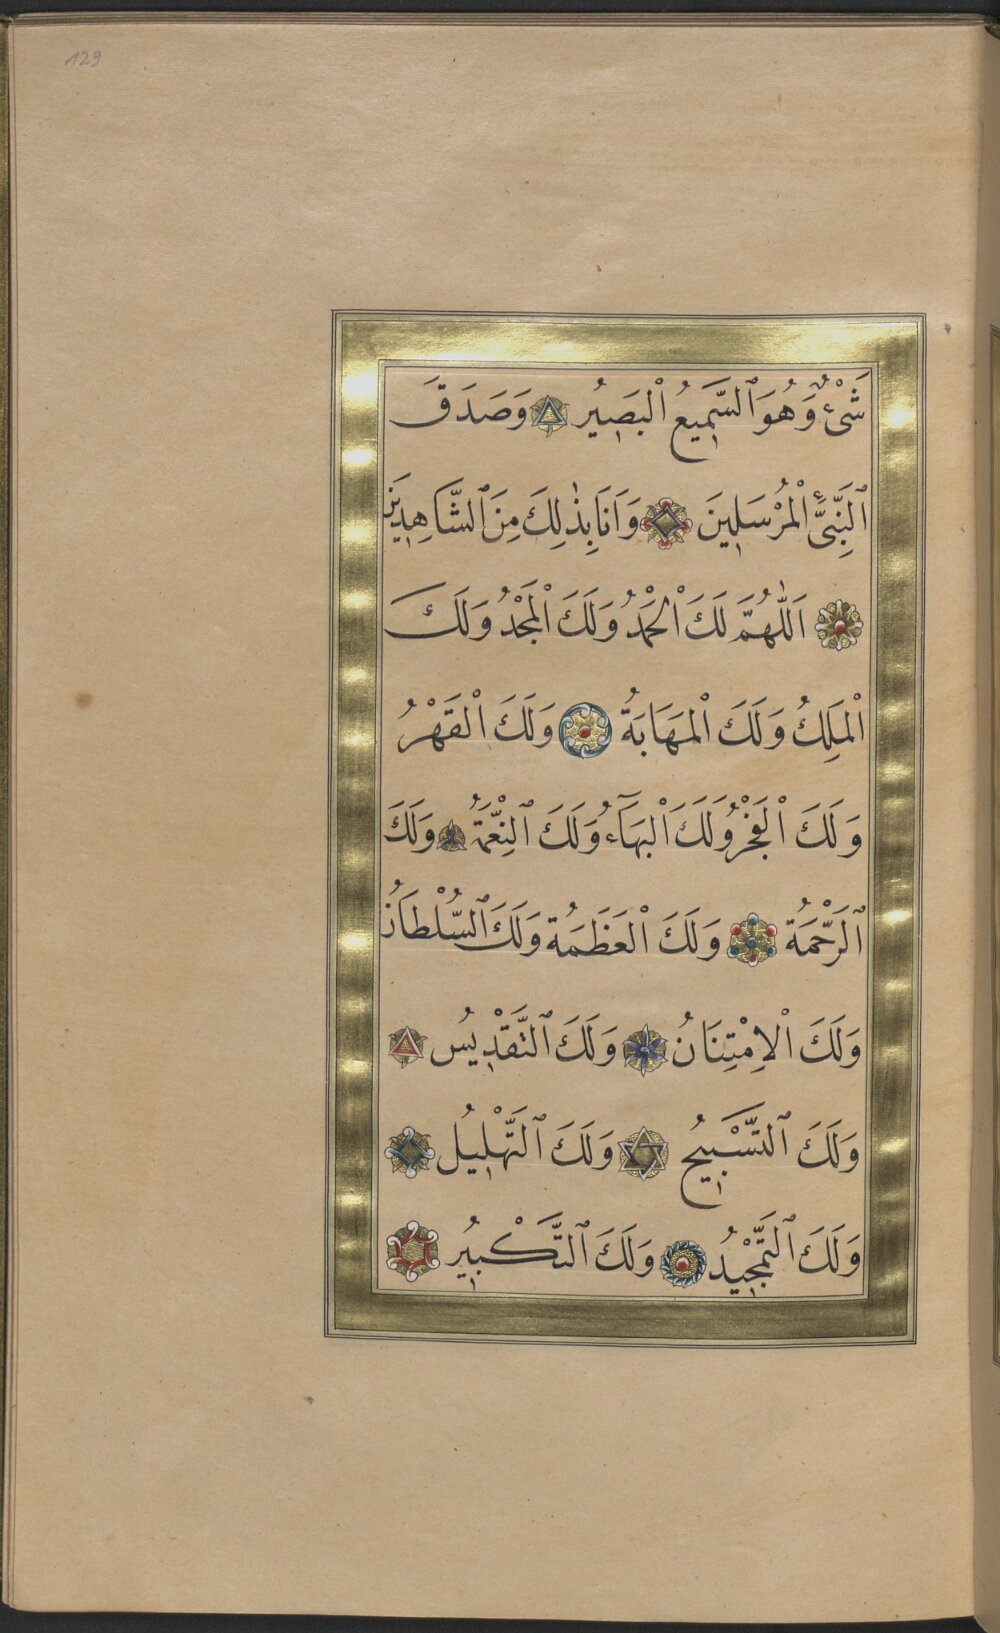 129
شَىْءٌ وَهُوَ ٱلسَّمِيعُ الْبَصِيرُ وَصَدَقَ
ٱلنَّبِىُّ الْمُرْسَلِينَ وَاَنَا بِذٰلِكَ مِنَ ٱلشَّاهِدِينَ
اَللّٰهُمَّ لَكَ الْحَمْدُ وَلَكَ الْمَجْدُ وَلَكَ
الْمَلِكُ وَلَكَ الْمَهَابَةُ وَلَكَ الْقَهْرُ
وَلَكَ الْفَخْرُ وَلَكَ الْبَهَآءُ وَلَكَ ٱلنِّعْمَةُ وَلَكَ
ٱلرَّحْمَةُ وَلَكَ الْعَظَمَةُ وَلَكَ ٱلسُّلْطَانُ
وَلَكَ الْاِمْتِنَانُ وَلَكَ ٱلتَّقْدِيسُ
وَلَكَ ٱلتَّسْبِيحُ وَلَكَ ٱلتَّهْلِيلُ
وَلَكَ ٱلتَّمْجِيْدُ وَلَكَ ٱلتَّكْبِيرُ